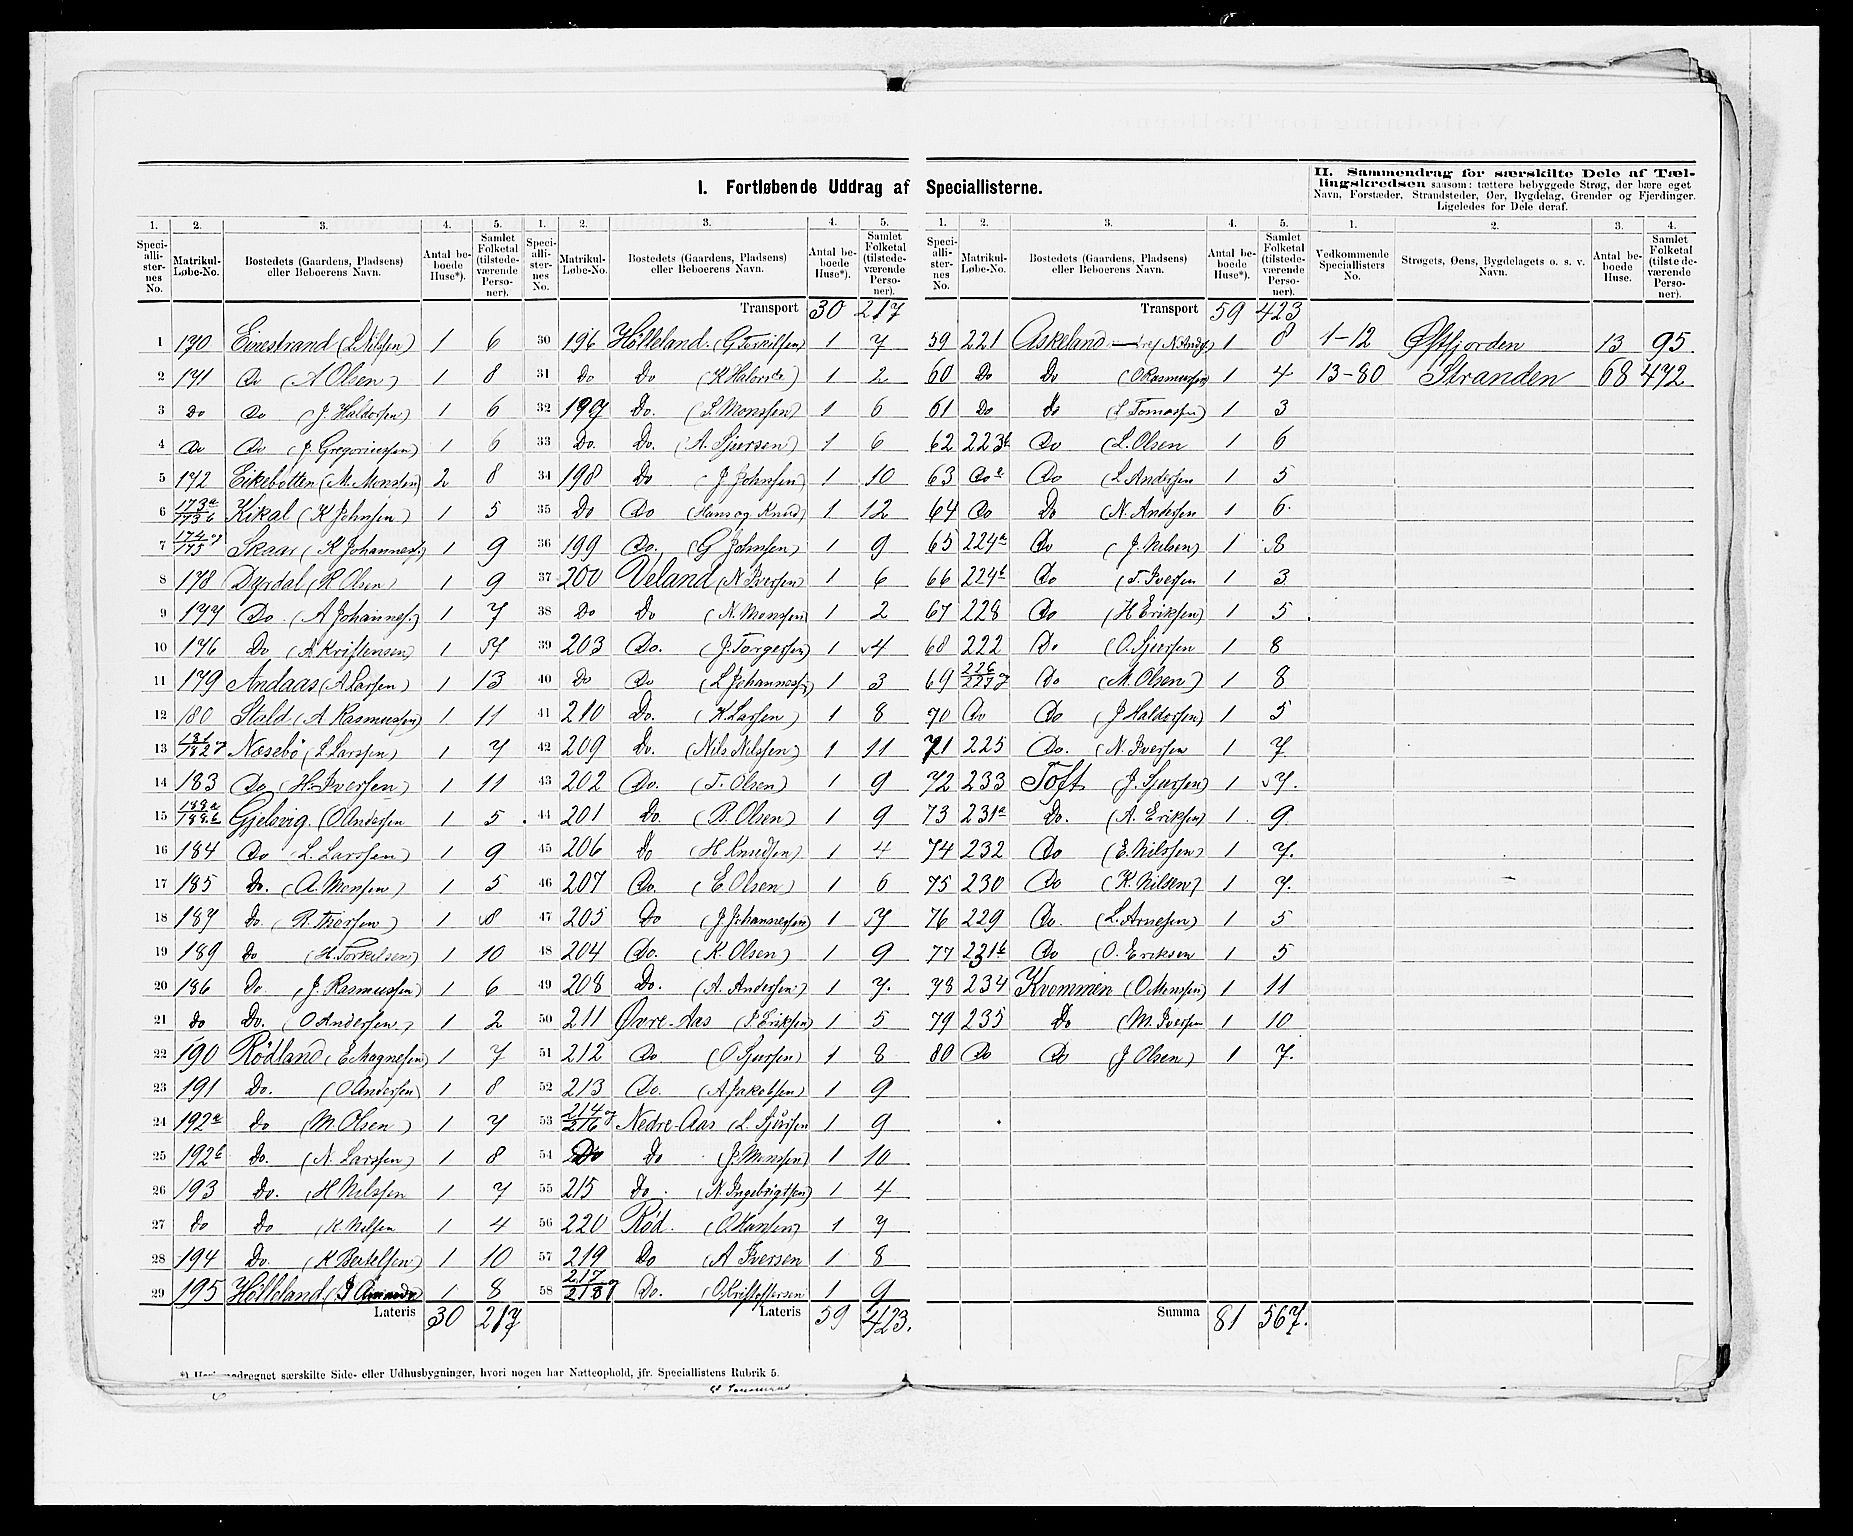 I. Fortløbende Uddrag af Speciallisterne.
1. Speciallisternes No. | 2. Matrikul-Løbe-No. | 3. Bostedets (Gaardens, Pladsens) eller Beboerens Navn. | 4. Antal beboede Huse*). | 5. Samlet Folketal (tilstedeværende Personer).
1 170 Einestrand (L Nilsen) 1 6
2 171 Do (A Olsen) 1 8
3 Do Do (J. Haldorsen) 1 6
4 Do Do (J. Gregoriussen) 1 6
5 172 Eikebotten (M. Monsen) 2 8
6 173a/173b Kikal (K Johnsen) 1 5
7 174 og/175 Skaar (K Johannes.) 1 9
8 178 Dyrdal (K Olsen) 1 9
9 177 Do. (A Johannes.) 1 7
10 176 Do (A Kristensen) 1 7
11 179 Andaas (A Larsen) 1 13
12 180 Stald (A Rasmussen) 1 11
13 181/182 Næsebø (L Larssen) 1 7
14 183 Do (H. Iversen) 1 11
15 188a/188b Gjelsvig (O Andersen 1 5
16 184 Do (L. Larssen) 1 9
17 185 Do. (A. Monsen) 1 5
18 187 Do (B. Iversen) 1 8
19 189 Do (H. Torkelsen) 1 10
20 186 Do. (J. Rasmussen) 1 6
21 Do Do. (O Andersen) 1 2
22 190 Rödland (E. Magnesen) 1 7
23 191 Do. (O Andersen) 1 8
24 192a Do (M Olsen) 1 7
25 192b Do. (N. Larssen) 1 8
26 193 Do. (H Nilssen 1 7
27 Do Do (K Nilsen 1 4
28 194 Do. (K Bertelsen) 1 10
29 195 Hölleland 1 8
Lateris 30 217
1. Speciallisternes No. | 2. Matrikul-Løbe-No. | 3. Bostedets (Gaardens, Pladsens) eller Beboerens Navn. | 4. Antal beboede Huse*). | 5. Samlet Folketal (tilstedeværende Personer).
Transport 30 217
30 196 Hölleland. (G Torkilsen) 1 7
31 Do Do 1 2
32 197 Do. (S. Monssen) 1 6
33 Do. Do. (A. Sjursen) 1 6
34 198 Do (J Johnsen) 1 10
35 Do Do (Hans og Knud) 1 12
36 199 Do. (G Johnsen) 1 9
37 200 Veland (N Iversen) 1 6
38 Do Do (N. Monssen) 1 2
39 203 Do. (J. Torgersen) 1 4
40 Do Do (L Johannessen) 1 3
41 210 Do. (K. Larsen) 1 8
42 209 Do. (Nils Nilssen) 1 11
43 202 Do. (T. Olsen) 1 9
44 201 Do. (B. Olsen) 1 9
45 206 Do (H Knudsen) 1 4
46 207 Do. (E. Olsen) 1 6
47 205 Do (J Johannessen) 1 7
48 204 Do. (K. Olsen) 1 9
49 208 Do. (A. Andersen) 1 7.
50 211 Øvre-Aas (P. Eriksen) 1 5
51 212 Do (O Sjursen) 1 8
52 213 Do. (A Jakobsen) 1 9
53 214 og/216 Nedre-Aas (L Sjursen 1 9
54 Do Do (J. Monssen) 1 10
55 215 Do. (N. Ingebrigtsen) 1 4
56 220 Röd. (O. Hansen) 1 7
57 219 Do (A Iversen 1 8
58 217/218 Do. (O. Kristoffersen 1 9
Lateris 59 423.
1. Speciallisternes No. | 2. Matrikul-Løbe-No. | 3. Bostedets (Gaardens, Pladsens) eller Beboerens Navn. | 4. Antal beboede Huse*). | 5. Samlet Folketal (tilstedeværende Personer).
Transport 59 423
59 221 Askeland 1 8
60 Do Do (O Rasmussen) 1 4
61 Do do (L Tomassen) 1 3
62 223b Do (L. Olsen 1 6
63 Do a Do (L Andersen 1 5
64 Do Do (N. Andersen 1 6.
65 224a Do (J. Nilsen) 1 8
66 224b Do (T. Iversen 1 3
67 228 Do (H Eriksen) 1 5
68 222 Do (O. Sjursen 1 8
69 226/227 Do (M. Olsen) 1 8
70 Do Do (J Haldorsen) 1 5
71 225 Do. (N. Iversen 1 7
72 233 Toft (J. Sjursen) 1 7.
73 231a Do. (A. Eriksen) 1 9
74 232 Do (E. Nilssen) 1 7.
75 230 Do (K. Nilsen) 1 7.
76 229 Do. (L. Arnesen) 1 5
77 231b Do (O. Eriksen 1 5
78 234 Kvommen (O Monssen) 1 11
79 235 Do (M. Iversen 1 10
80 Do Do (J Olsen) 1 7.
Summa 81 567.
II. Sammendrag for særskilte Dele af Tællingskredsen saasom: tættere bebyggede Strøg, der bære eget Navn, Forstæder, Strandsteder, Øer, Bygdelag, Grender og Fjerdinger. Ligeledes for Dele deraf.
1. Vedkommende Speciallisters No. | 2. Strøgets, Øens, Bygdelagets o. s. v. Navn. | 3. Antal beboede Huse. | 4. Samlet Folketal (tilstedeværende Personer).
1-12 Østfjorden 13 95.
13-80 Stranden 68 472
nogen har Natteophold, jfr. Speciallistens Rubrik 5.